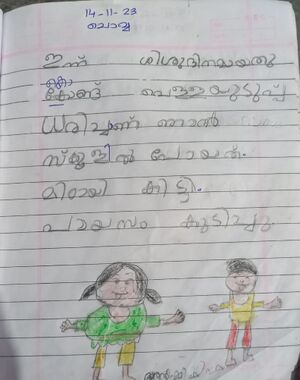 14-11-23
ചൊവ്വ
ഇന്ന് ശിശുദിനമായതു
കൊണ്ട് വെള്ളയുടുപ്പ്
ധരിച്ചാണ് ഞാൻ
സ്കൂളിൽ പോയത്.
മിഠായി കിട്ടി.
പായസം കുടിച്ചു